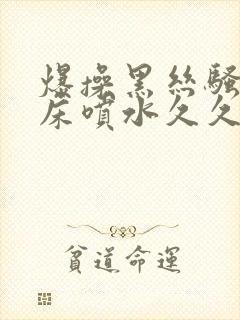 爆操黑丝騷
床噴水久久
貧道命運